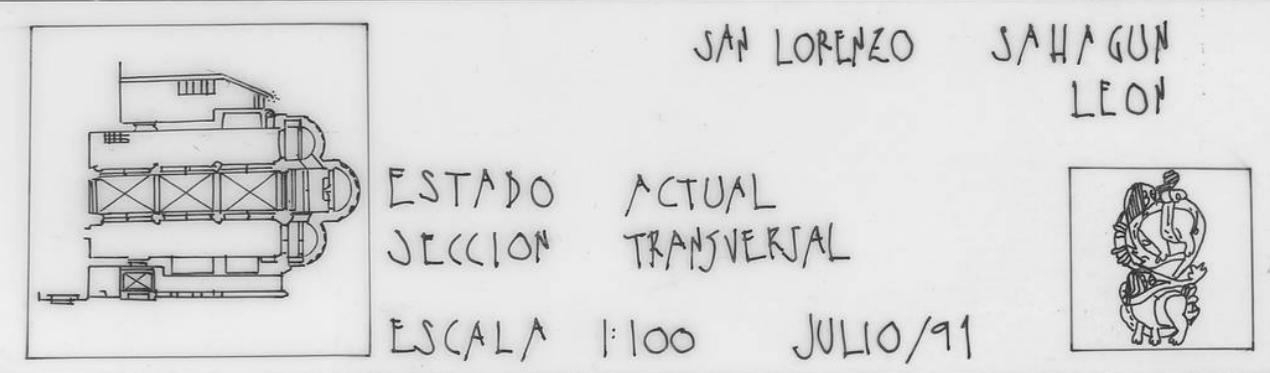 SAN LORENZO SAHAGUN
LEON
ESTADO ACTUAL
SECCION TRANSVERSAL
ESCALA 1:100 JULIO/91